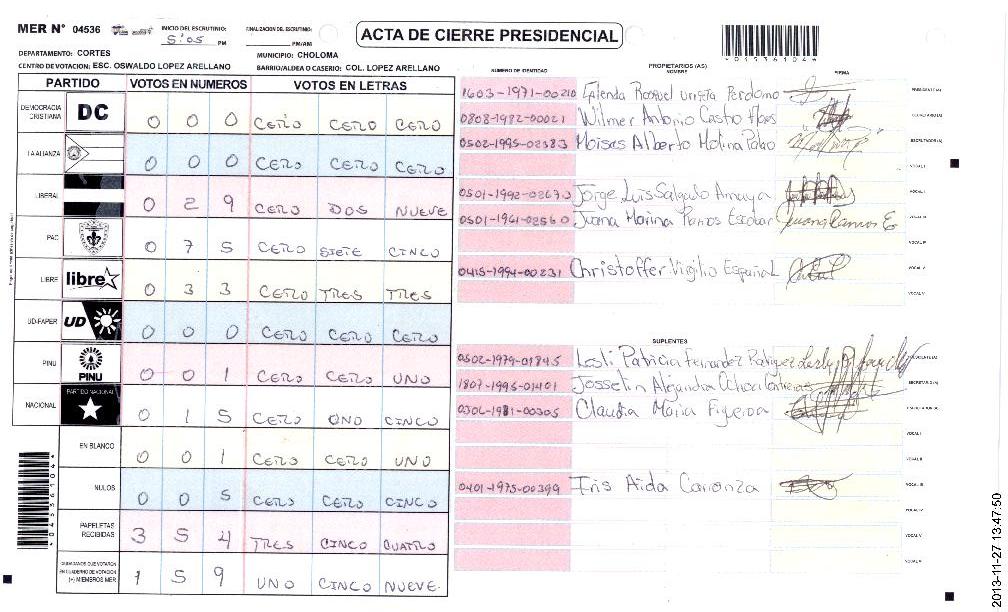 MER N° 04536
INICIO DEL ESCRUTINIO:
5:05 PM
FINALIZACION DEL ESCRUTINIO:
PM/AM
ACTA DE CIERRE PRESIDENCIAL
DEPARTAMENTO: CORTES
MUNICIPIO: CHOLOMA
CENTRO DE VOTACION: ESC. OSWALDO LOPEZ ARELLANO
BARRIO/ALDEA O CASERIO: COL. LOPEZ ARELLANO
PARTIDO VOTOS EN NUMEROS VOTOS EN LETRAS
DEMOCRACIA CRISTIANA DC 0 0 0 CERO CERO CERO
LA ALIANZA 0 0 0 CERO CERO CERO
LIBERAL 0 2 9 CERO DOS NUEVE
PAC 0 7 5 CERO SIETE CINCO
LIBRE libre 0 3 3 CERO TRES TRES
UD-FAPER UD 0 0 0 CERO CERO CERO
PINU PINU 0 0 1 CERO CERO UNO
NACIONAL PARTIDO NACIONAL 0 1 5 CERO UNO CINCO
EN BLANCO 0 0 1 CERO CERO UNO
NULOS 0 0 5 CERO CERO CINCO
PAPELETAS RECIBIDAS 3 5 4 TRES CINCO CUATRO
CIUDADANOS QUE VOTARON EN CUADERNO DE VOTACION (+) MIEMBROS MER 1 5 9 UNO CINCO NUEVE
NUMERO DE IDENTIDAD PROPIETARIOS (AS) NOMBRE FIRMA
1603-1971-00210 Perdomo PRESIDENTE (A)
0808-1982-00021 Wilmer Antonio Castro SECRETARIO (A)
0502-1995-02583 Moises Alberto Molina ESCRUTADOR (A)
VOCAL I
0501-1992-02670 Jorge Luis Salgado Amaya VOCAL II
0501-1961-02560 Juana Marina Ramos Escobar Juana Ramos E VOCAL III
VOCAL IV
0415-1994-00231 Christoffer Virgilio Español VOCAL V
VOCAL VI
SUPLENTES
0502-1979-01845 Lesli Patricia Fernandez Rodriguez PRESIDENTE (A)
1807-1995-01401 Josselin Alejandra Ochoa Contreras SECRETARIO (A)
0306-1981-00305 Claudia Maria Figeroa ESCRUTADOR (A)
VOCAL I
VOCAL II
0401-1975-00399 Iris Aida Carranza VOCAL III
VOCAL IV
VOCAL V
VOCAL VI
2013-11-27 13:47:50